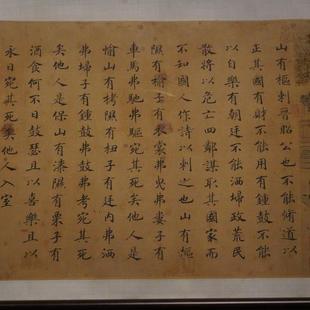 山有樞刺晉昭公也不能脩道以
正其國有財不能用有鍾鼓不能
以自樂有朝廷不能洒埽政荒民
散將以危亡四鄰謀取其國家而
不知國人作詩以刺之也山有樞
隰有榆子有衣裳弗曳弗婁子有
車馬弗馳弗驅宛其死矣他人是
愉山有栲隰有杻子有廷内弗洒
弗埽子有鍾鼓弗鼓弗考宛其死
矣他人是保山有漆隰有栗子有
酒食何不日鼓瑟且以喜樂且以
永日宛其死矣他人入室